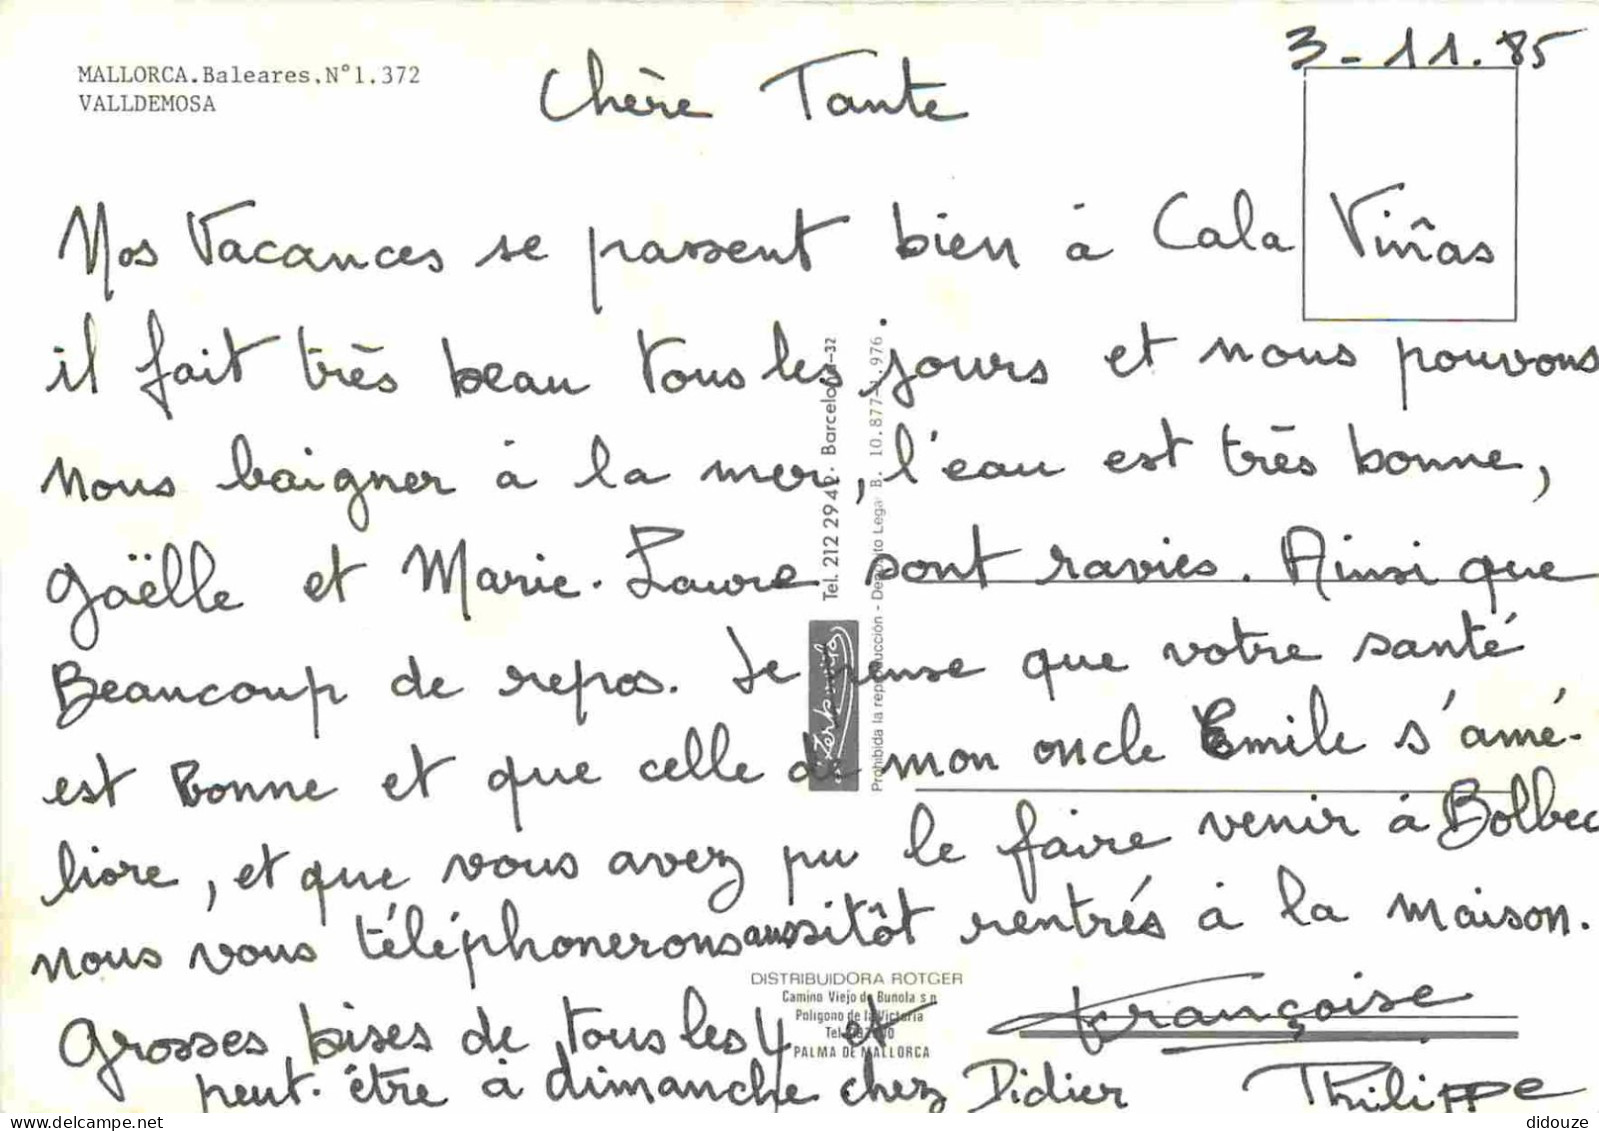 3-11.85
MALLORCA.Baleares.N°1.372
VALLDEMOSA
Chère Tante
Nos Vacances se passent bien à Cala Viñas
il fait très beau tous les jours et nous pouvons
nous baigner à la mer, l'eau est très bonne,
Gaëlle et Marie-Laure sont ravies. Ainsi que
Beaucoup de repos. Je pense que votre santé
est bonne et que celle de mon oncle Emile s'amé-
liore, et que vous avez pu le faire venir à Bolbec
nous vous téléphonerons aussitôt rentrés à la maison.
Grosses bises de tous les 4 et Françoise
peut-être à dimanche chez Didier Philippe
Tel. 212 29 42 - Barcelona-32
Prohibida la reproducción - Depósito Legal B. 10.877-1.976
DISTRIBUIDORA ROTGER
Camino Viejo de Buñola s n
Poligono de la Victoria
Tel.
PALMA DE MALLORCA
didouze